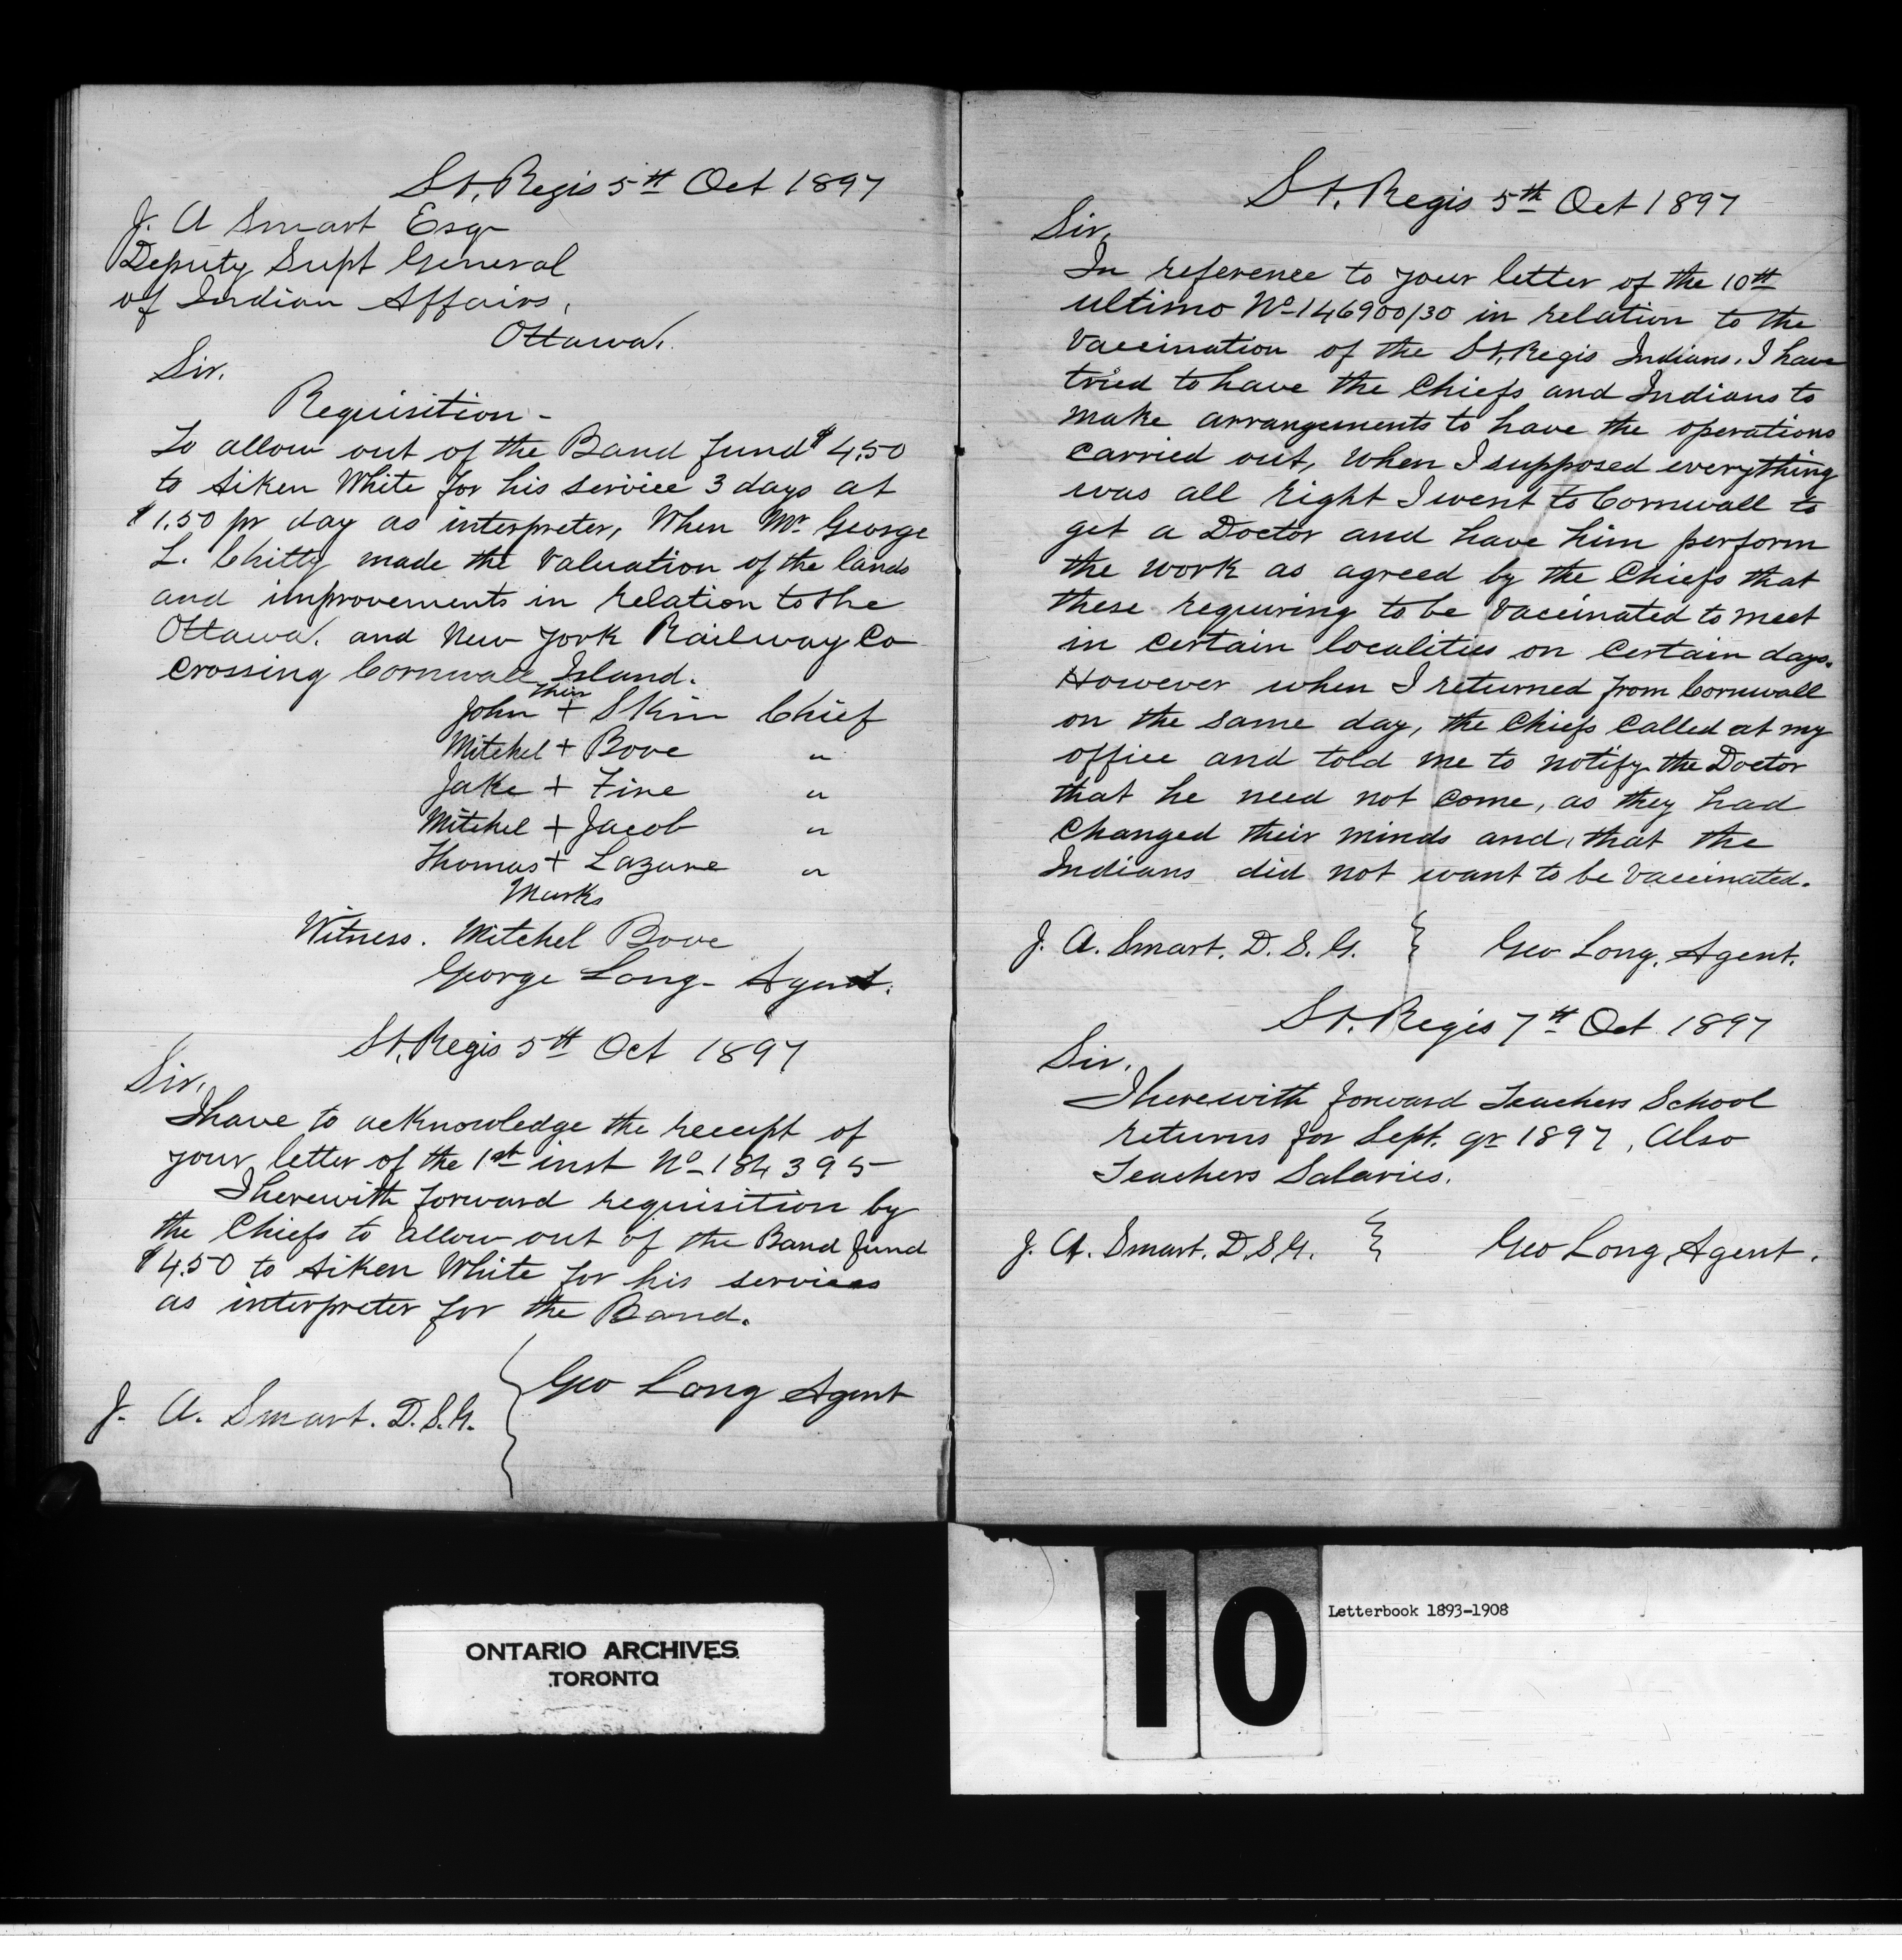 St. Regis 5th Oct 1897
J. A Smart Esqr
Deputy Supt General
of Indian Affairs,
Ottawa.
Sir.
Requisition -
To allow out of the Band fund $4.50
to Aiken White for his service 3 days at
$1.50 pr day as interpreter, When Mr George
L. Chitty made the Valuation of the lands
and improvements in relation to the
Ottawa. and New York Railway Co
crossing Cornwall Island.
their
John + Skin Chief
Mitchel + Bove "
Jake + Fine "
Mitchel + Jacob "
Thomas + Lazare "
Marks
Witness. Mitchel Bove
George Long - Agent.
St. Regis 5th Oct 1897
Sir,
I have to acknowledge the receipt of
your letter of the 1st inst No 184395
I herewith forward requisition by
the Chiefs to allow out of the Band fund
$4.50 to Aiken White for his services
as interpreter for the Band.
J. A. Smart. D.S.G. } Geo Long Agent
St. Regis 5th Oct 1897
Sir,
In reference to your letter of the 10th
ultimo No 146900/30 in relation to the
Vaccination of the St. Regis Indians. I have
tried to have the Chiefs and Indians to
make arrangements to have the operations
carried out, When I supposed everything
was all right I went to Cornwall to
get a Doctor and have him perform
the work as agreed by the Chiefs that
these requiring to be Vaccinated to meet
in certain localities on certain days.
However when I returned from Cornwall
on the same day, the Chiefs called at my
office and told me to notify the Doctor
that he need not come, as they had
changed their minds and, that the
Indians did not want to be Vaccinated.
J. A. Smart. D. S. G. } Geo Long. Agent.
St. Regis 7th Oct 1897
Sir.
I herewith forward Teachers School
returns for Sept. qr 1897, Also
Teachers Salaries.
J. A. Smart. D.S.G. } Geo Long Agent.
ONTARIO ARCHIVES
TORONTO
10
Letterbook 1893-1908